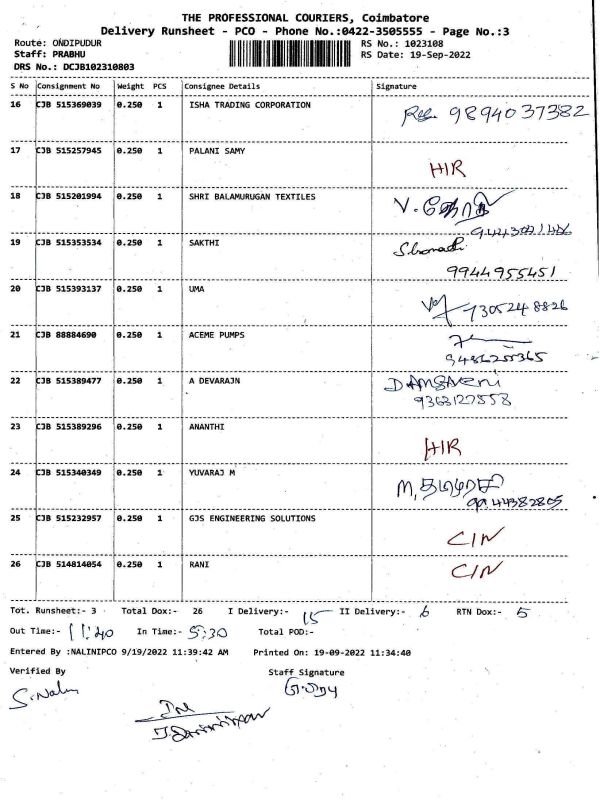 THE PROFESSIONAL COURIERS, Coimbatore
Delivery Runsheet - PCO - Phone No.:0422-3505555 - Page No.:3
Route: ONDIPUDUR RS No.: 1023108
Staff: PRABHU RS Date: 19-Sep-2022
DRS No.: DCJB102310803
S No Consignment No Weight PCS Consignee Details Signature
16 CJB 515369039 0.250 1 ISHA TRADING CORPORATION 9894037382
17 CJB 515257945 0.250 1 PALANI SAMY
HIR
18 CJB 515201994 0.250 1 SHRI BALAMURUGAN TEXTILES V.
19 CJB 515353534 0.250 1 SAKTHI
9944955451
20 CJB 515393137 0.250 1 UMA
7305248826
21 CJB 88884690 0.250 1 ACEME PUMPS
9486255365
22 CJB 515389477 0.250 1 A DEVARAJN
9363127558
23 CJB 515389296 0.250 1 ANANTHI
HIR
24 CJB 515340349 0.250 1 YUVARAJ M M.
9944382805
25 CJB 515232957 0.250 1 GJS ENGINEERING SOLUTIONS
CIN
26 CJB 514814054 0.250 1 RANI CIN
Tot. Runsheet:- 3 Total Dox:- 26 I Delivery:- 15 II Delivery:- 6 RTN Dox:- 5
Out Time:- 11:40 In Time:- 5:30 Total POD:-
Entered By :NALINIPCO 9/19/2022 11:39:42 AM Printed On: 19-09-2022 11:34:40
Verified By Staff Signature
S.Nalini